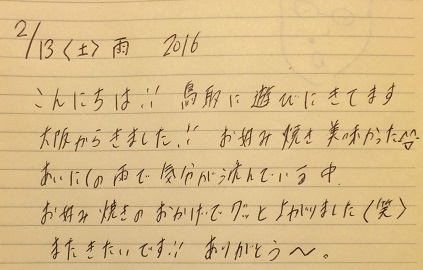 2/13〈土〉雨 2016
こんにちは!! 鳥取に遊びにきてます
大阪からきました!! お好み焼き美味かった☆
あいにくの雨で気分が沈んでいる中
お好み焼きのおかげでグッと上がりました〈笑〉
またきたいです!! ありがとう〜。